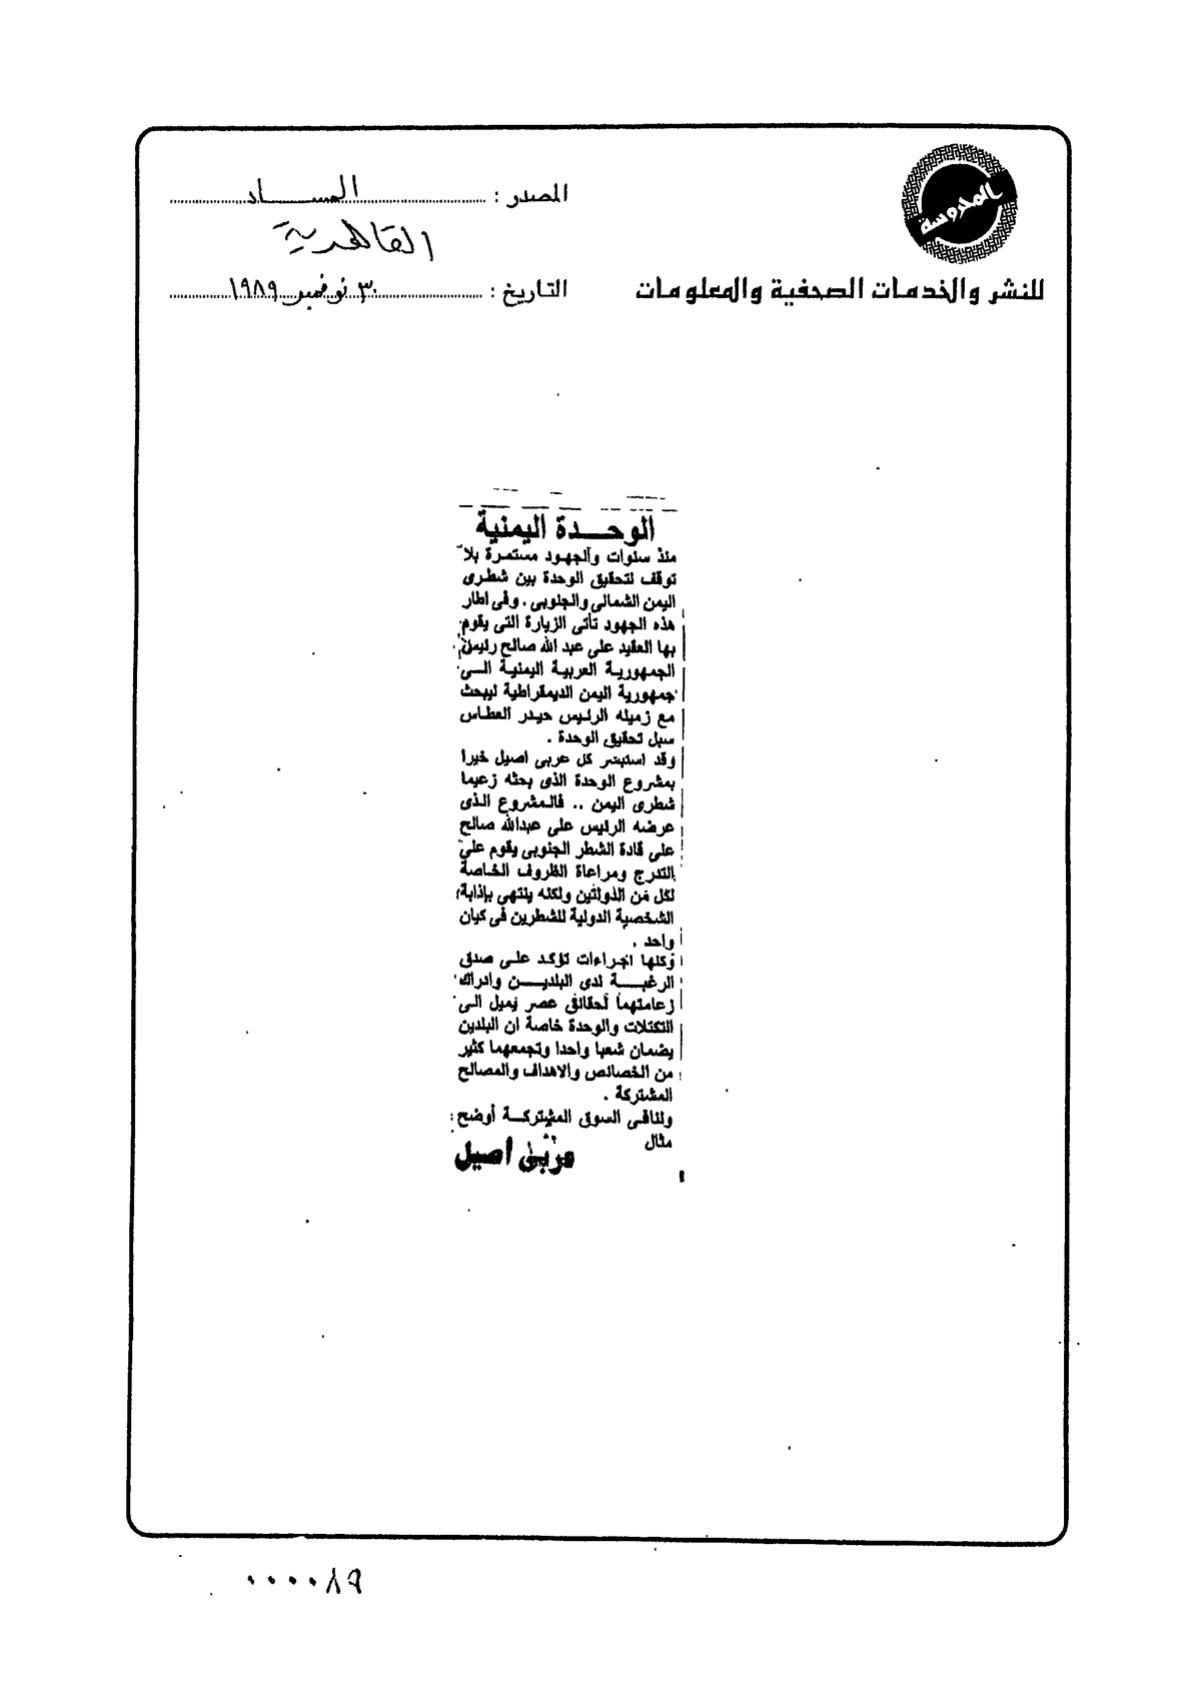 المحروسة
للنشر والخدمات الصحفية والمعلومات
المصدر : المساء
القاهرية
التاريخ : ٣٠ نوفمبر ١٩٨٩
الوحدة اليمنية
منذ سنوات والجهود مستمرة بلا
توقف لتحقيق الوحدة بين شطرى
اليمن الشمالى والجنوبى . وفى اطار
هذه الجهود تأتى الزيارة التى يقوم
بها العقيد على عبد الله صالح رئيس
الجمهورية العربية اليمنية الى
جمهورية اليمن الديمقراطية ليبحث
مع زميله الرئيس حيدر العطاس
سبل تحقيق الوحدة .
وقد استبشر كل عربى اصيل خيرا
بمشروع الوحدة الذى بحثه زعيما
شطرى اليمن .. فالمشروع الذى
عرضه الرئيس على عبدالله صالح
على قادة الشطر الجنوبى يقوم على
التدرج ومراعاة الظروف الخاصة
لكل من الدولتين ولكنه ينتهى بإذابة
الشخصية الدولية للشطرين فى كيان
واحد .
وكلها اجراءات تؤكد على صدق
الرغبة لدى البلدين وادراك
زعامتهما لحقائق عصر يميل الى
التكتلات والوحدة خاصة ان البلدين
يضمان شعبا واحدا وتجمعهما كثير
من الخصائص والاهداف والمصالح
المشتركة .
ولنافى السوق المشتركة أوضح
مثال
عربى أصيل
٠٠٠٠٨٩